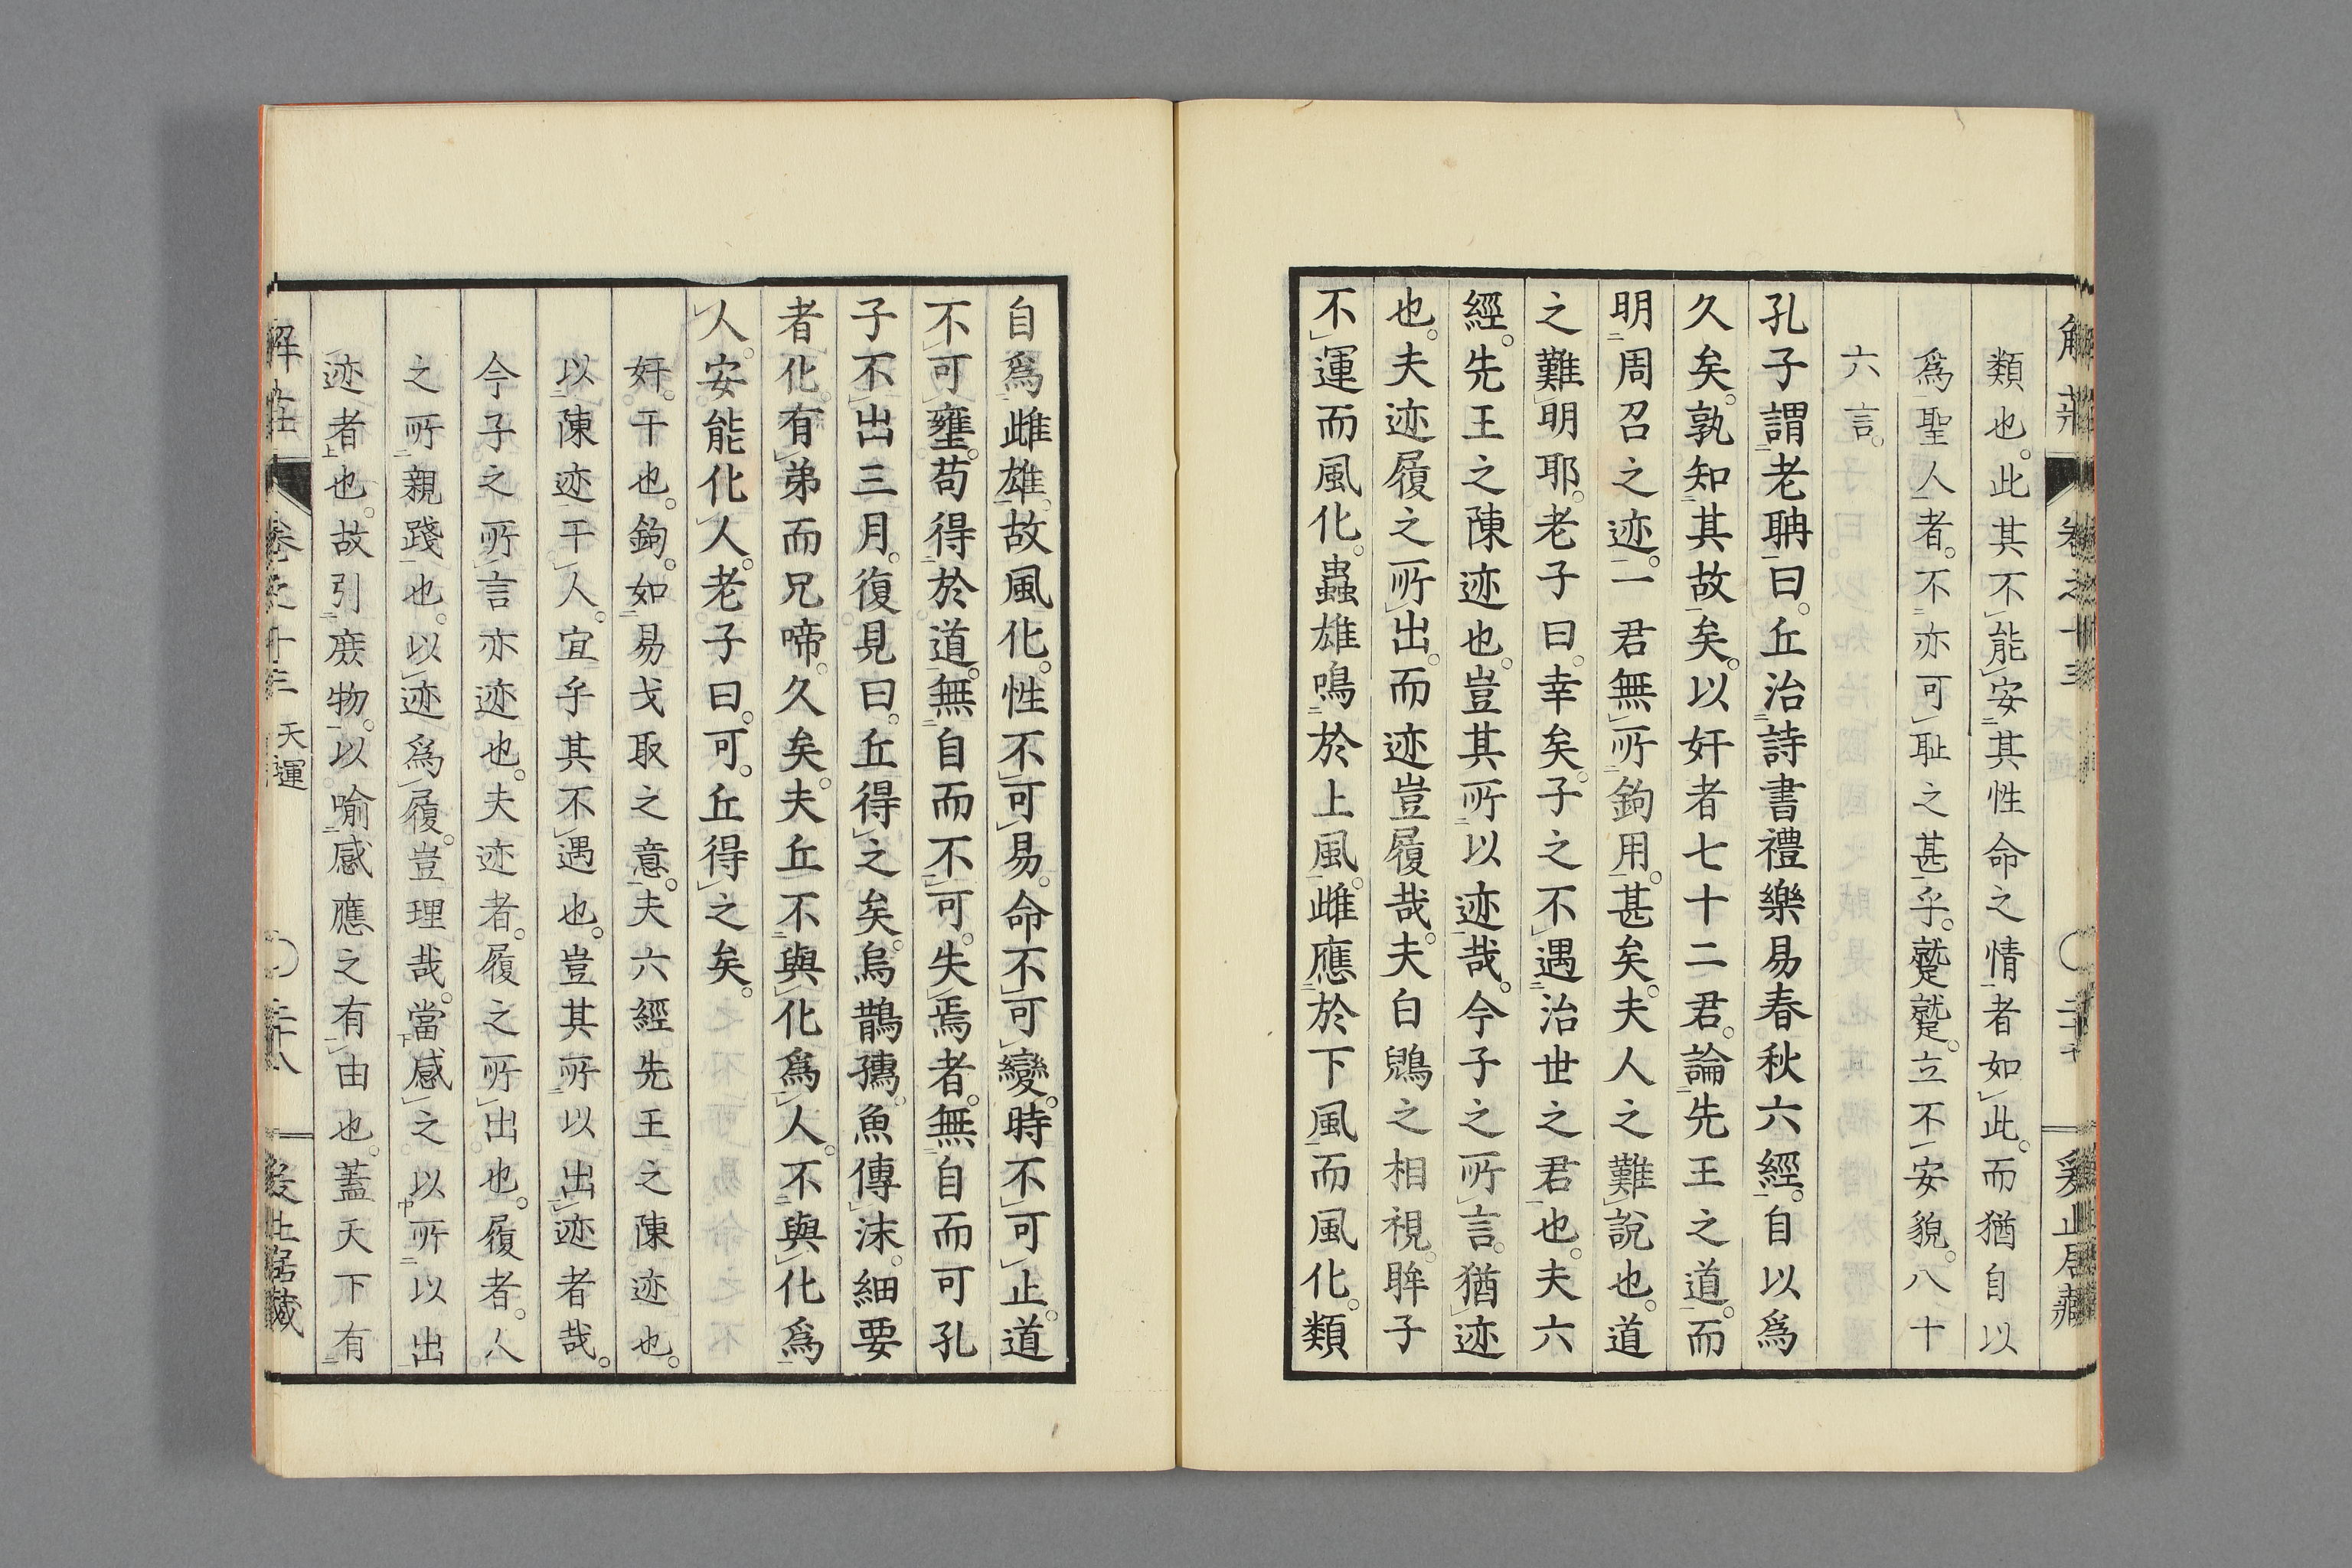 類也。此其不能安其性命之情者如此。而猶自以
爲聖人者。不亦可耻之甚乎。蹵蹵。立不安貌。八十
六言。
孔子謂老聃曰。丘治詩書禮樂易春秋六經。自以爲
久矣。孰知其故矣。以奸者七十二君。論先王之道。而
明周召之迹。一君無所鉤用。甚矣。夫人之難說也。道
之難明耶。老子曰。幸矣。子之不遇治世之君也。夫六
經。先王之陳迹也。豈其所以迹哉。今子之所言。猶迹
也。夫迹履之所出。而迹豈履哉。夫白鶂之相視。眸子
不運而風化。蟲雄鳴於上風。雌應於下風而風化。類
自爲雌雄。故風化。性不可易。命不可變。時不可止。道
不可壅。苟得於道。無自而不可。失焉者。無自而可孔
子不出三月。復見曰。丘得之矣。烏鵲孺。魚傳沫。細要
者化。有弟而兄啼。久矣。夫丘不與化爲人。不與化爲
人。安能化人。老子曰。可。丘得之矣。
奸。干也。鉤。如易弋取之意。夫六經先王之陳迹也。
以陳迹干人。宜乎其不遇也。豈其所以出迹者哉。
今子之所言亦迹也。夫迹者。履之所出也。履者。人
之所親踐也。以迹爲履。豈理哉。當感之以所以出
迹者也。故引庶物。以喻感應之有由也。蓋天下有
解莊 卷之十三 天運 二十八